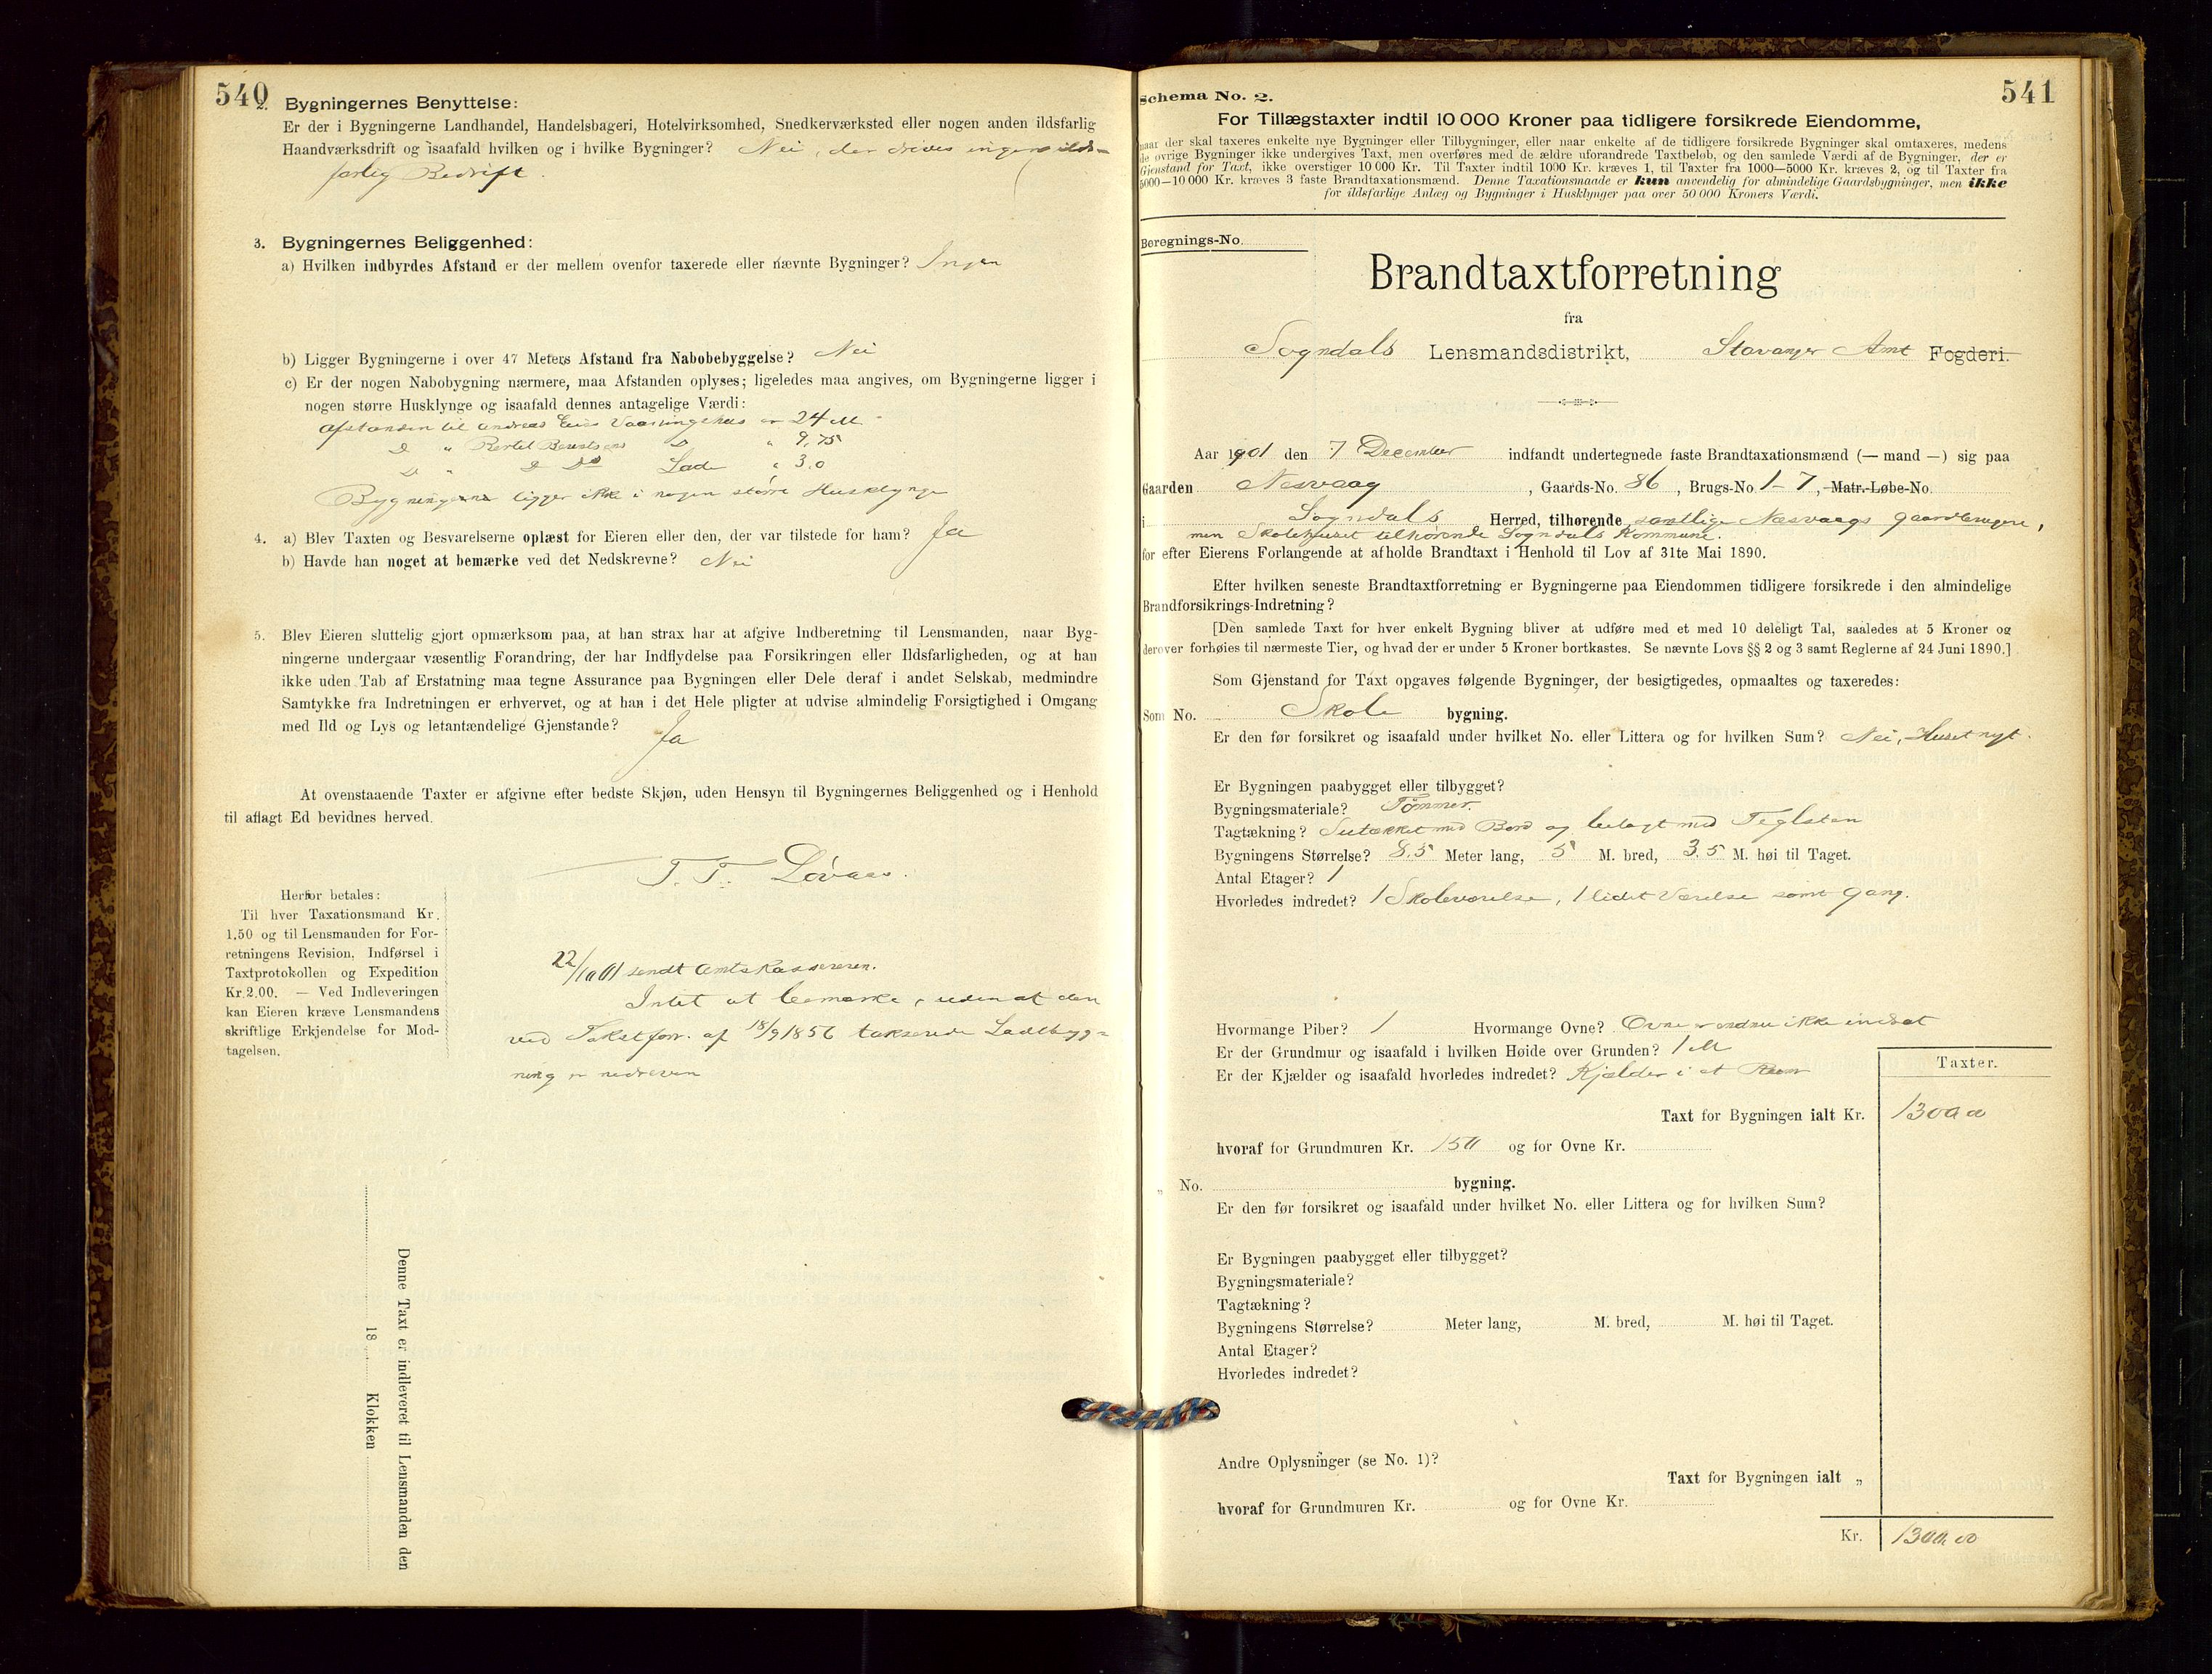 540
2. Bygningernes Benyttelse:
Er der i Bygningerne Landhandel, Handelsbageri, Hotelvirksomhed, Snedkerværksted eller nogen anden ildsfarlig
Haandværksdrift og isaafald hvilken og i hvilke Bygninger? Nei, der drives ingen ilds-
farlig Bedrift.
3. Bygningernes Beliggenhed:
a) Hvilken indbyrdes Afstand er der mellem ovenfor taxerede eller nævnte Bygninger? Ingen
b) Ligger Bygningerne i over 47 Meters Afstand fra Nabobebyggelse? Nei
c) Er der nogen Nabobygning nærmere, maa Afstanden oplyses; ligeledes maa angives, om Bygningerne ligger i
nogen større Husklynge og isaafald dennes antagelige Værdi:
Afstanden til Andreas Vaaningshus er 24 M.
D " Bertel D " 9,75
D " D Do Lade " 3,0
Bygningerne ligger ikke i nogen større Husklynge
4. a) Blev Taxten og Besvarelserne oplæst for Eieren eller den, der var tilstede for ham? Ja
b) Havde han noget at bemærke ved det Nedskrevne? Nei
5. Blev Eieren sluttelig gjort opmærksom paa, at han strax har at afgive Indberetning til Lensmanden, naar Byg-
ningerne undergaar væsentlig Forandring, der har Indflydelse paa Forsikringen eller Ildsfarligheden, og at han
ikke uden Tab af Erstatning maa tegne Assurance paa Bygningen eller Dele deraf i andet Selskab, medmindre
Samtykke fra Indretningen er erhvervet, og at han i det Hele pligter at udvise almindelig Forsigtighed i Omgang
med Ild og Lys og letantændelige Gjenstande?
Ja
At ovenstaaende Taxter er afgivne efter bedste Skjøn, uden Hensyn til Bygningernes Beliggenhed og i Henhold
til aflagt Ed bevidnes herved.
T. T. Løvaas.
Herfor betales:
Til hver Taxationsmand Kr.
1,50 og til Lensmanden for For-
retningens Revision, Indførsel i
Taxtprotokollen og Expedition
Kr. 2.00. — Ved Indleveringen
kan Eieren kræve Lensmandens
skriftlige Erkjendelse for Mod-
tagelsen.
22/10 01 sendt Amtskassereren.
Intet at bemærke, uden at den
ved Takstforr. af 18/9 1856 takserede Ladebyg-
ning er nedreven
Denne Taxt er indleveret til Lensmanden den
18 Klokken
541
Schema No. 2.
For Tillægstaxter indtil 10 000 Kroner paa tidligere forsikrede Eiendomme,
naar der skal taxeres enkelte nye Bygninger eller Tilbygninger, eller naar enkelte af de tidligere forsikrede Bygninger skal omtaxeres, medens
de øvrige Bygninger ikke undergives Taxt, men overføres med de ældre uforandrede Taxtbeløb, og den samlede Værdi af de Bygninger, der er
Gjenstand for Taxt, ikke overstiger 10 000 Kr. Til Taxter indtil 1000 Kr. kræves 1, til Taxter fra 1000—5000 Kr. kræves 2, og til Taxter fra
5000—10 000 Kr. kræves 3 faste Brandtaxationsmænd. Denne Taxationsmaade er kun anvendelig for almindelige Gaardsbygninger, men ikke
for ildsfarlige Anlæg og Bygninger i Husklynger paa over 50 000 Kroners Værdi.
Beregnings-No.
Brandtaxtforretning
fra
Sogndals Lensmandsdistrikt, Stavanger Amt Fogderi.
Aar 1901 den 7 December indfandt undertegnede faste Brandtaxationsmænd (— mand —) sig paa
Gaarden Nesvaag, Gaards-No. 86, Brugs-No. 1-7, Matr.-Løbe-No.
i Sogndals Herred, tilhørende samtlige Nesvaags gaardbrugere,
men Skolehuset tilhørende Sogndals Kommune.
for efter Eierens Forlangende at afholde Brandtaxt i Henhold til Lov af 31te Mai 1890.
Efter hvilken seneste Brandtaxtforretning er Bygningerne paa Eiendommen tidligere forsikrede i den almindelige
Brandforsikrings-Indretning?
[Den samlede Taxt for hver enkelt Bygning bliver at udføre med et med 10 deleligt Tal, saaledes at 5 Kroner og
derover forhøies til nærmeste Tier, og hvad der er under 5 Kroner bortkastes. Se nævnte Lovs §§ 2 og 3 samt Reglerne af 24 Juni 1890.]
Som Gjenstand for Taxt opgaves følgende Bygninger, der besigtigedes, opmaaltes og taxeredes:
Som No. Skole bygning.
Er den før forsikret og isaafald under hvilket No. eller Littera og for hvilken Sum? Nei, Huset nyt.
Er Bygningen paabygget eller tilbygget?
Bygningsmateriale? Tømmer.
Tagtækning? Sutækket med Bord og belagt med Teglsten
Bygningens Størrelse? 8,5 Meter lang, 5 M. bred, 3,5 M. høi til Taget.
Antal Etager? 1
Hvorledes indredet? 1 Skoleværelse, 1 lidet Værelse samt gang.
Hvormange Piber? 1 Hvormange Ovne? Ovne er endnu ikke indsat
Er der Grundmur og isaafald i hvilken Høide over Grunden? 1 M
Er der Kjælder og isaafald hvorledes indredet? Kjælder i et Rum
Taxter.
Taxt for Bygningen ialt Kr. 1300 00
hvoraf for Grundmuren Kr. 150 og for Ovne Kr.
„ No. bygning.
Er den før forsikret og isaafald under hvilket No. eller Littera og for hvilken Sum?
Er Bygningen paabygget eller tilbygget?
Bygningsmateriale?
Tagtækning?
Bygningens Størrelse? Meter lang, M. bred, M. høi til Taget.
Antal Etager?
Hvorledes indredet?
Andre Oplysninger (se No. 1)?
Taxt for Bygningen ialt „
hvoraf for Grundmuren Kr. og for Ovne Kr.
Kr. 1300 00